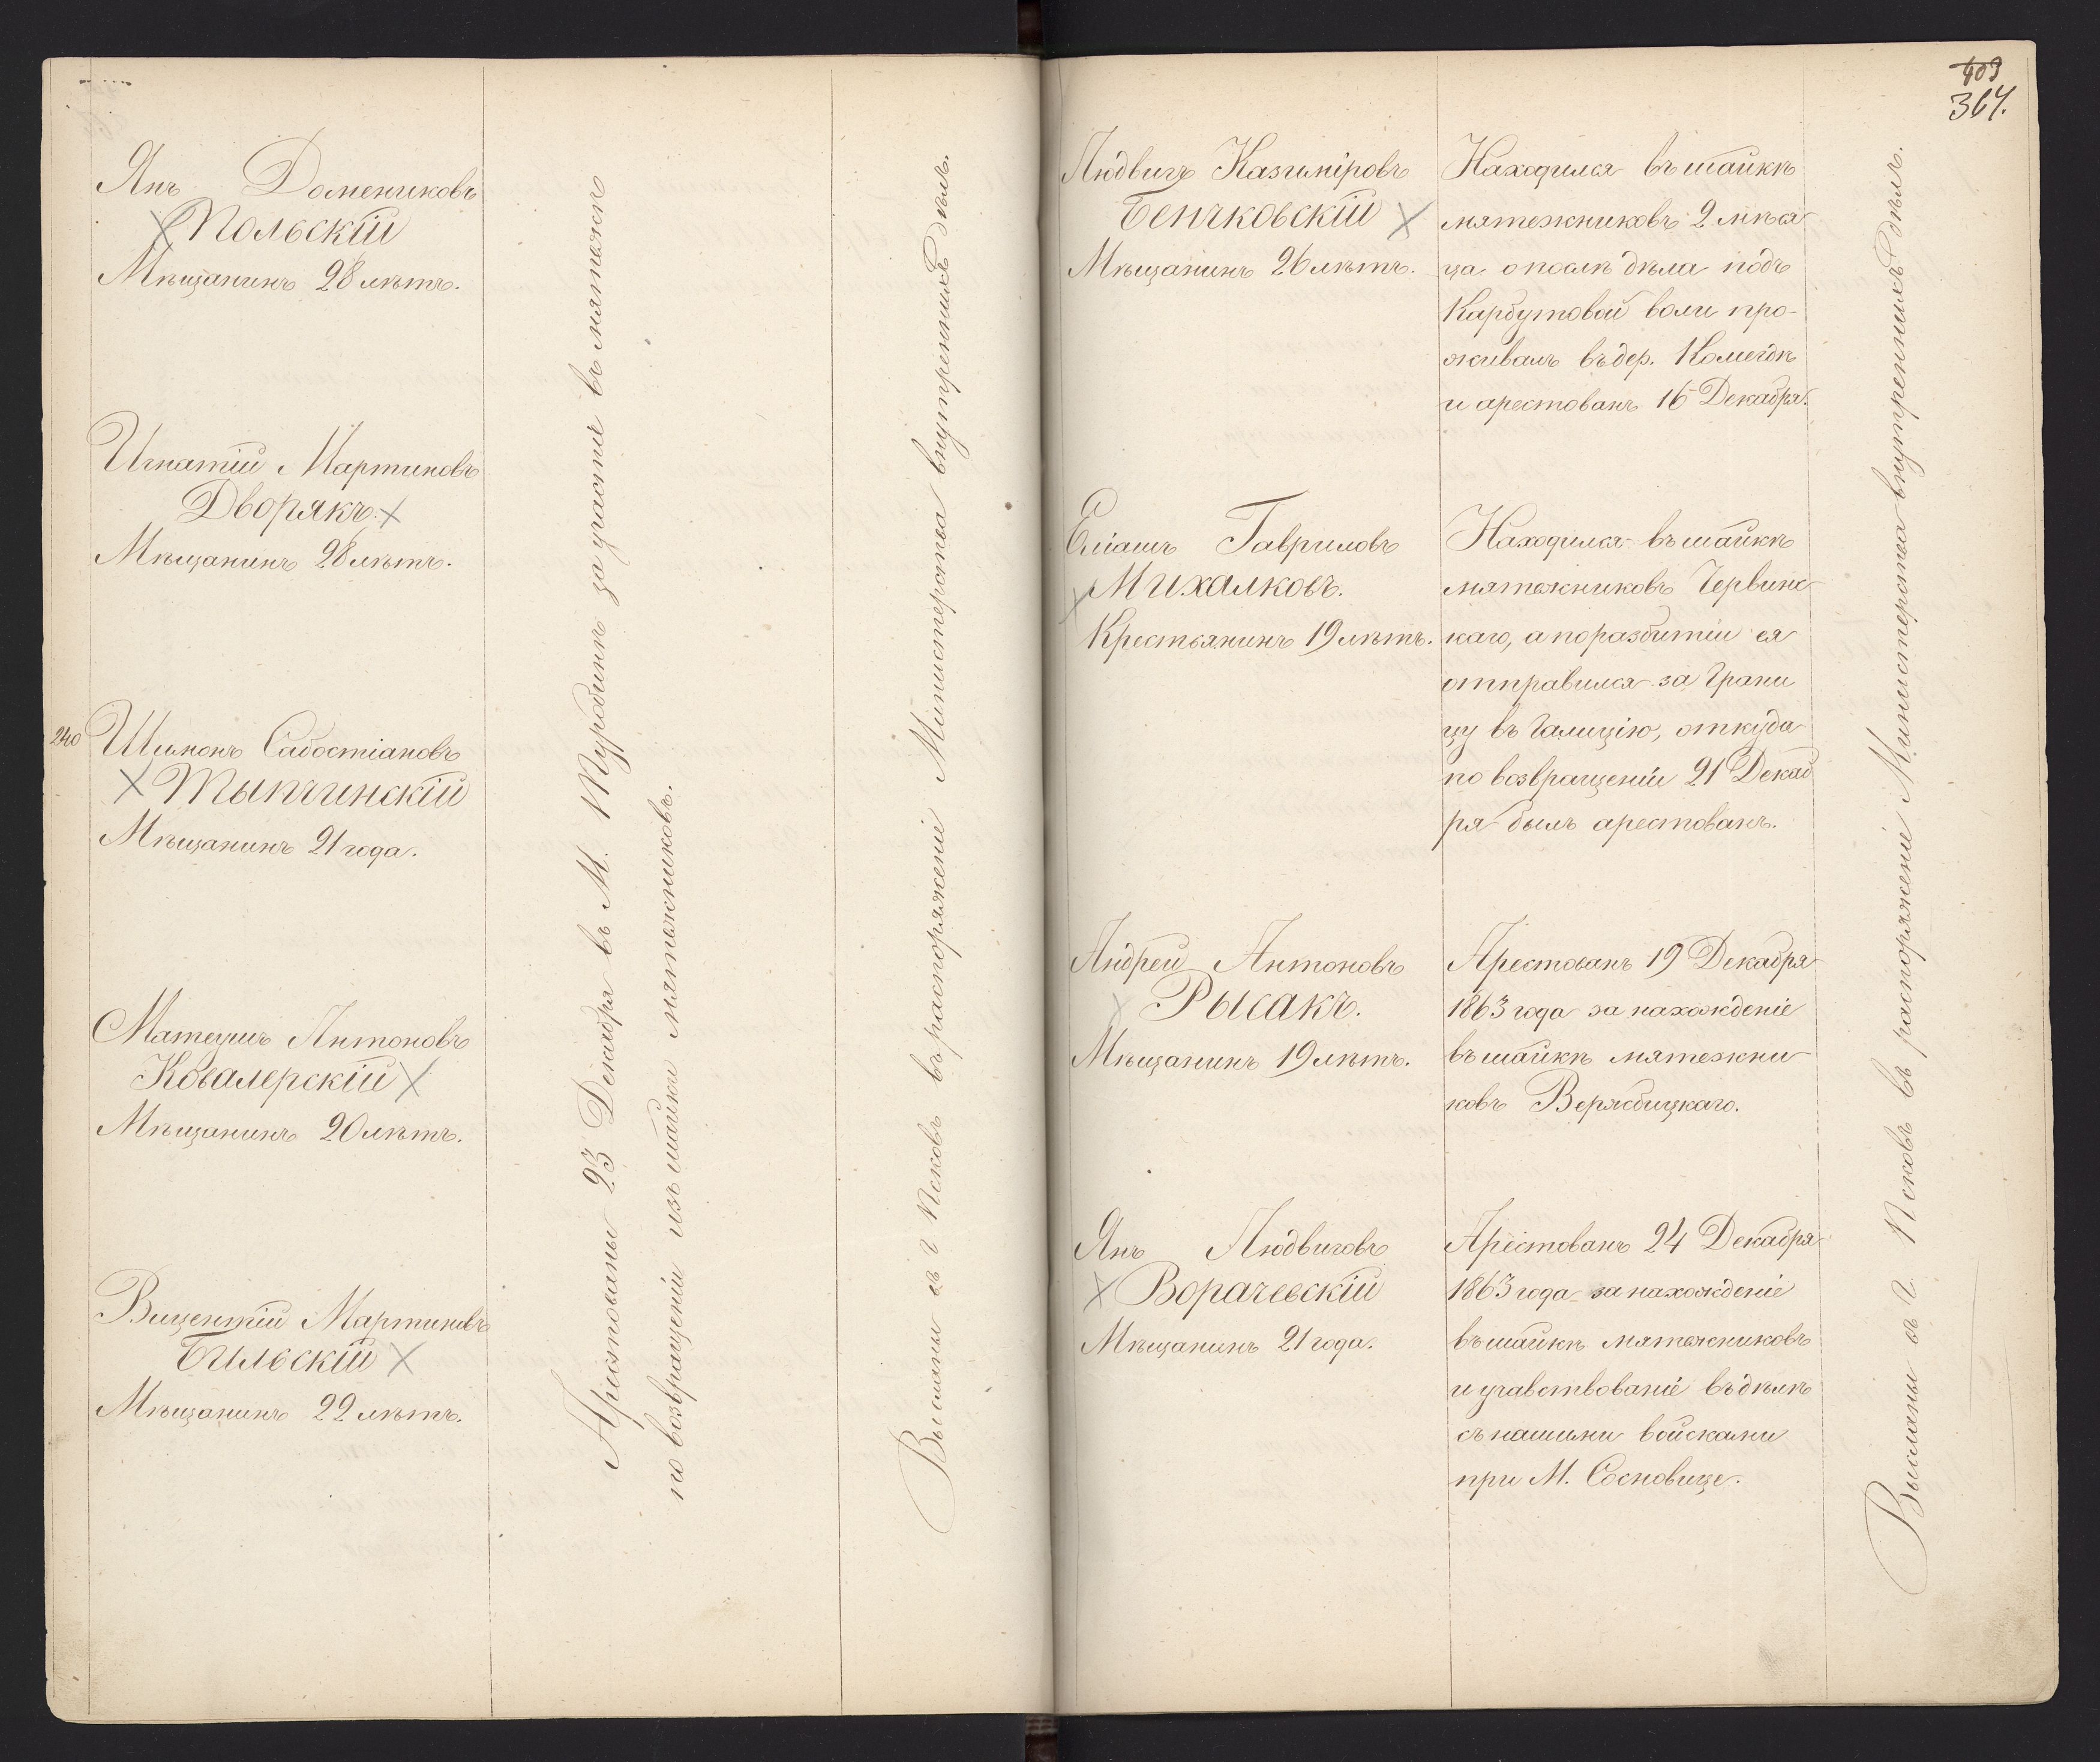 Янъ Домениковъ
Польскій
Мѣщанинъ 28 лѣтъ.
Игнатій Мартиновъ
Дворякъ.
Мѣщанинъ 28 лѣтъ.
240
Шимонъ Сабостіановъ
Тыпчинскій
Мѣщанинъ 21 года.
Матеушъ Антоновъ
Ковалерскій
Мѣщанинъ 20 лѣтъ.
Вицентій Мартиновъ
Бильскій
Мѣщанинъ 22 лѣтъ.
Арестованы 23 Декабря въ М. Турбинѣ за участіе въ мятежѣ
по возвращеніи изъ шайки мятежниковъ.
Высланы въ г. Псковъ въ распоряженіе Министерства внутреннихъ дѣлъ.
409
364.
Людвигъ Казиміровъ
Бенчковскій
Мѣщанинъ 26 лѣтъ.
Находился въ шайкѣ
мятежниковъ 2 мѣся
ца а послѣ дѣла подъ
Карбутовой воли про-
живалъ въ дер.
и арестованъ 16 Декабря.
Еліашъ Гавриловъ
Михалковъ.
Крестьянинъ 19 лѣтъ.
Находился въ шайкѣ
мятежниковъ Червинс
каго, а по разбитіи ея
отправился за Грани
цу въ Галицію, откуда
по возвращеніи 21 Декаб
ря былъ арестованъ.
Андрей Антоновъ
Рысакъ.
Мѣщанинъ 19 лѣтъ.
Арестованъ 19 Декабря
1863 года за нахожденіе
въ шайкѣ мятежни
ковъ Вержбицкаго.
Янъ Людвиговъ
Ворачевскій
Мѣщанинъ 21 года.
Арестованъ 24 Декабря
1863 года за нахожденіе
въ шайкѣ мятежниковъ
и учавствованіе въ дѣлѣ
съ нашими войсками
при М. Сосновице.
Высланы въ г. Псковъ въ распоряженіе Министерства внутреннихъ дѣлъ.